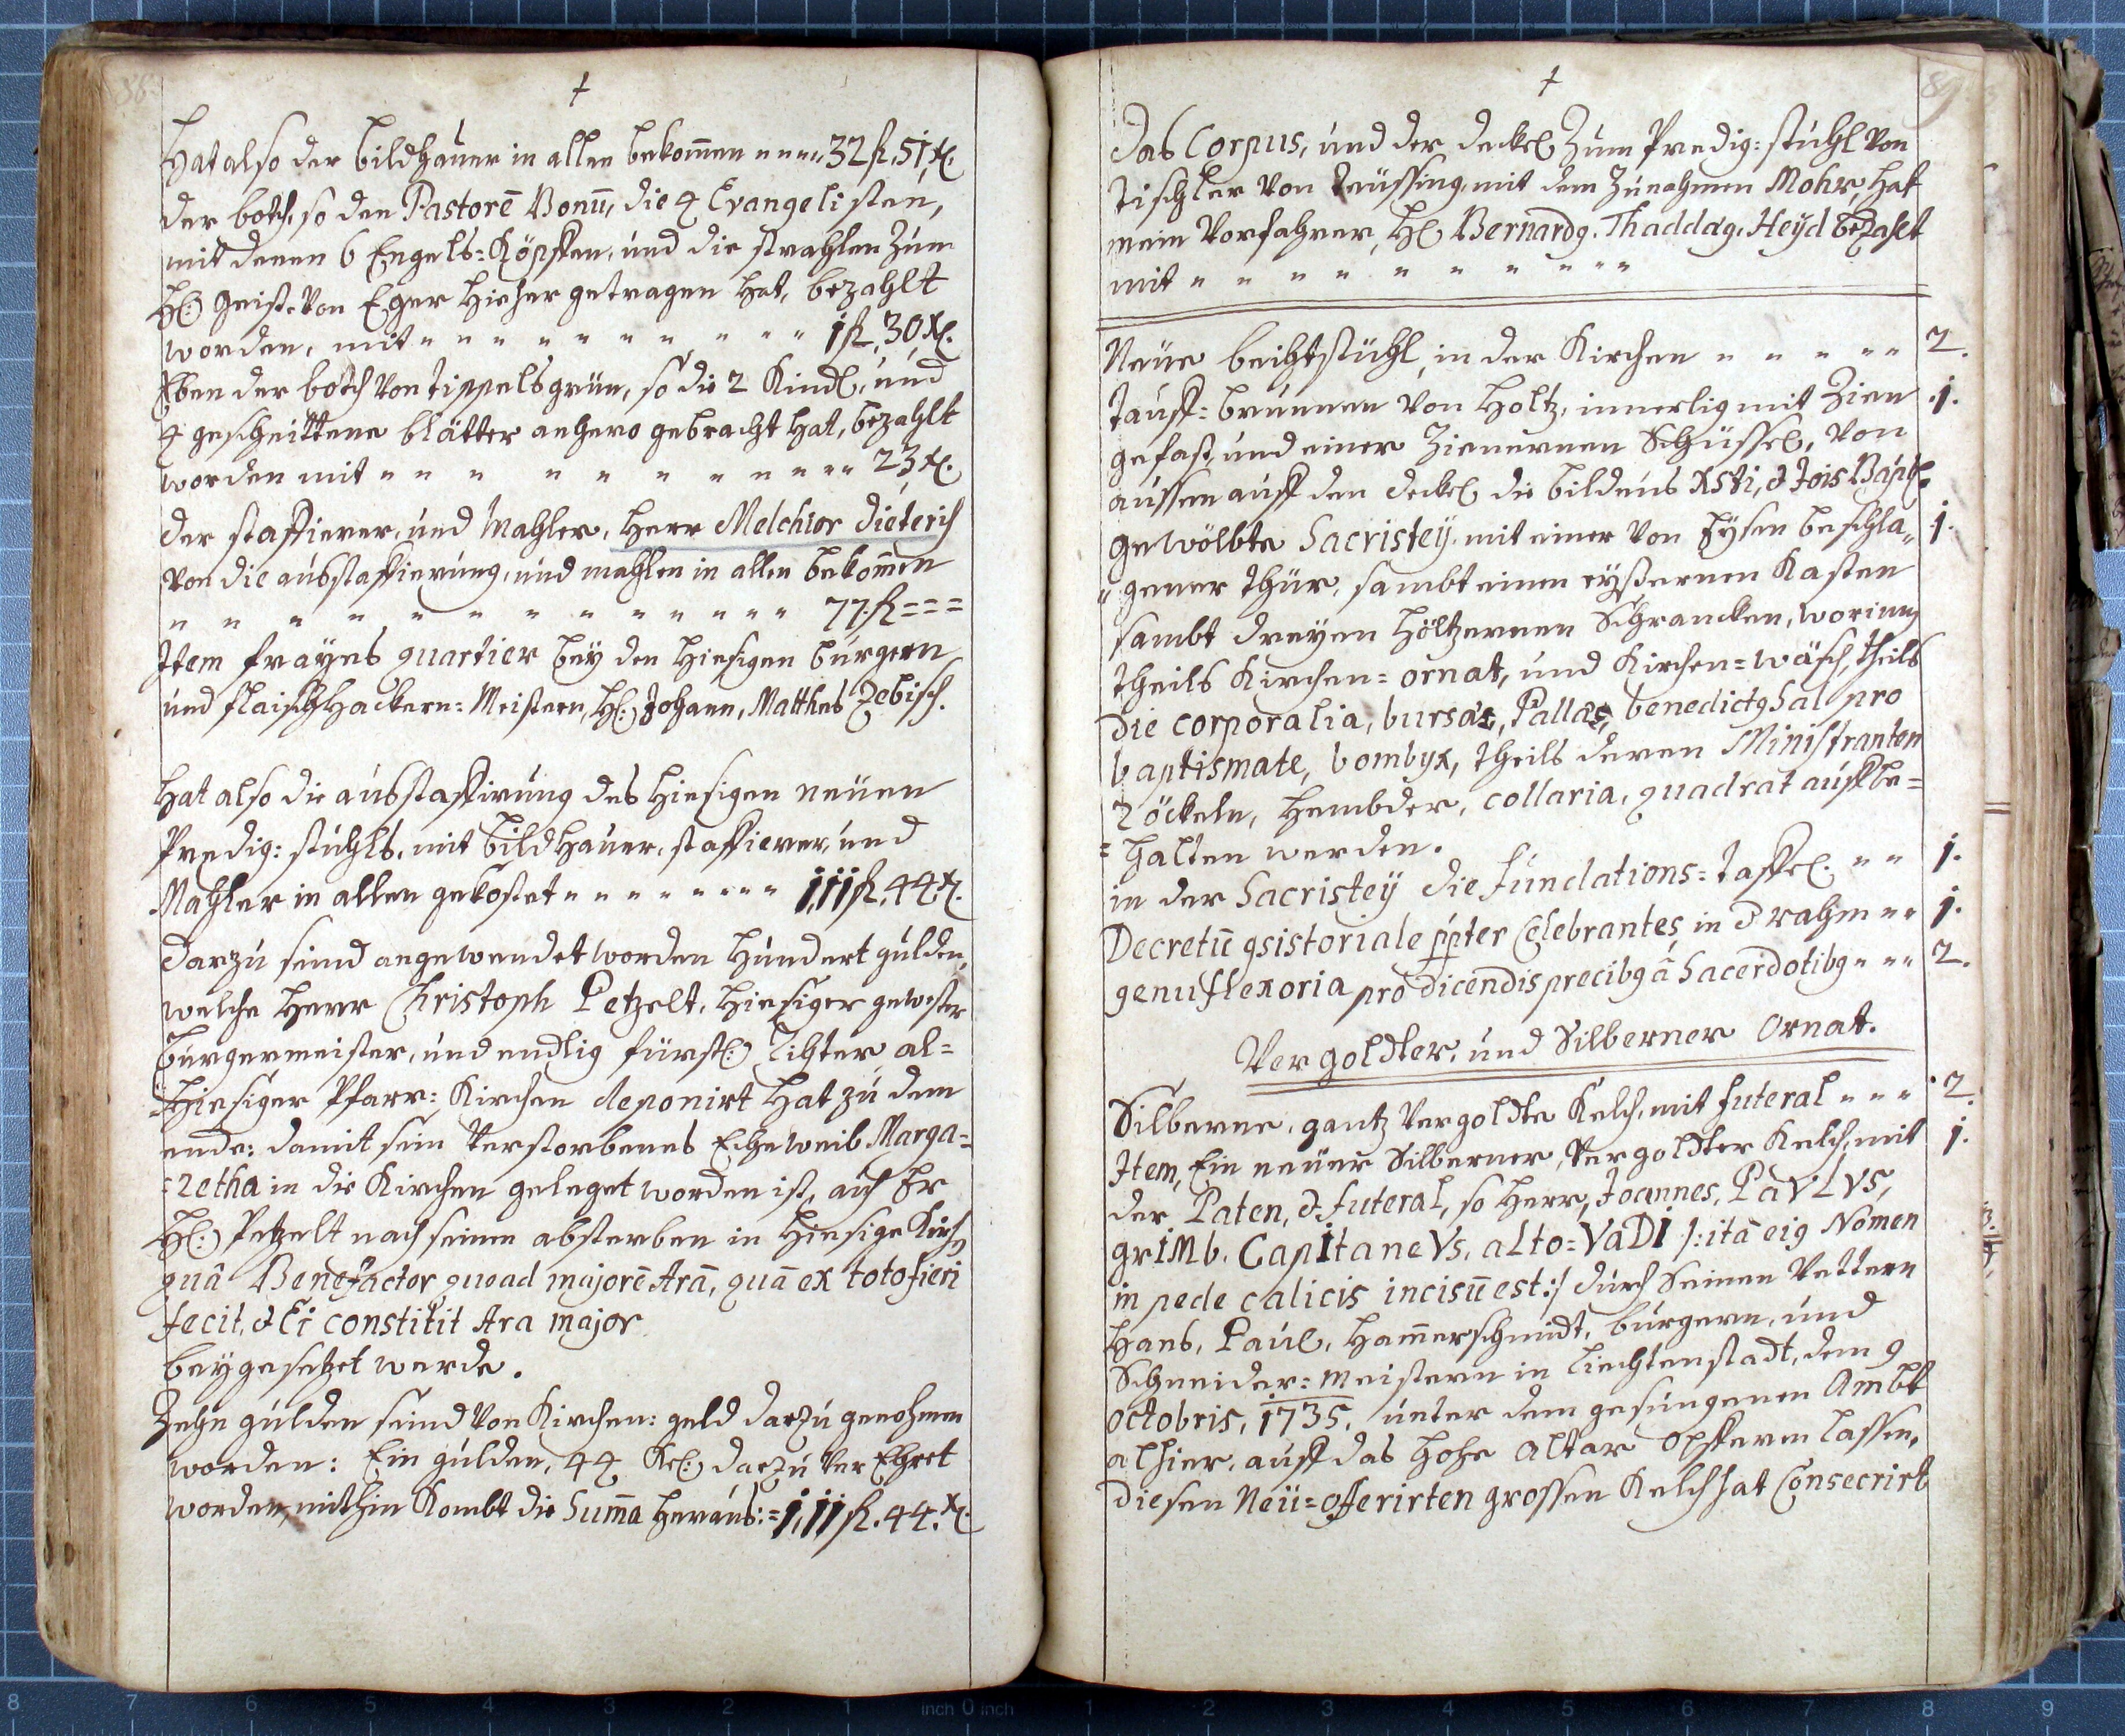 88
†
Hat also der bildhauer in allen bekom̄en """" 32 fl. 51 x.
der both, so den Pastorē Bonū, die 4 Evangelisten,
mit denen 6 Engels=Köpffen, und die strahlen Zum
H: geist von Eger hieher getragen hat, bezahlt
worden, mit " " " " " " " " " " 1 fl, 30 x.
Eben der both von Tippelsgrün, so die 2 Kindl, und
4 geschnittene blätter anhero gebracht hat, bezahlt
worden mit " " " " " " " " " " " " 23 x.
der staffierer, und Mahler, Herr Melchior Dieterich
von die ausstaffierung, und mahlen in allen bekom̄en
" " " " " " " " " " " " " 77. fl = = =
Item frayes quartier bey den hiesigen bürgern
und flaischhackern=Meistern, H: Johann, Matthes Zebisch.
Hat also die ausstaffirung des hiesigen neüen
Predig=stuhls, mit bildhauer, staffierer, und
Mahler in allen gekostet " " " " " " " " 111 fl. 44 x.
darzu seind angewendet worden Hundert gulden,
welche Herr Christoph Petzelt, hiesiger gewester
burgermeister, und endlig fürstl: Richter al=
=hiesiger Pfarr: Kirchen deponirt hat zu dem
ende: damit sein verstorbenes Eheweib Marga=
=retha in die Kirchen geleget worden ist, auch Er
H: Petzelt nach seinem absterben in hiesige Kirch
quâ Benefactor quoad majorē Arā, quā ex toto fieri
fecit, & Ei constitit Ara major
beygesetzet werde.
Zehn gulden seind von Kirchen: geld darzu genohmen
worden: Ein gulden, 44 Kr: darzu ver Ehret
worden, mithin Kombt die Sum̄a heraus: = 111 fl. 44. x.
†
89
das Corpus, und der deckel Zum Predig: stuhl von
tischler von Teüssing, mit dem Zunahmen Mohr, hat
mein Vorfahrer, H: Bernardq. Thaddæq. Heyd bezahlt
mit " " " " " " " " " "
Neüe beichtstühl, in der Kirchen " " " " " 2.
Tauff=brunnen von Holtz, innerlig mit Zien 1.
gefast, und einer Zienernen Schüssel, von
aussen auff den deckel die bildnus Xsti, & Jois Bapt.
gewölbte Sacristeÿ mit einer von Eysen beschla= 1.
=gener thür, sambt einen eyßernen Kasten
sambt dreyen höltzernen Schrancken, worinnen
theils Kirchen=ornat, und Kirchen=wäsch, theils
die corporalia, bursæ, Pallæ, benedictq Sal pro
baptismate, bombyx, theils deren Ministranten
röckeln, hembder, collaria, quadrat auffbe=
=halten werden.
in der Sacristeÿ die fundations=taffel. " " 1.
Decretū qsistoriale ppter Celebrantes in d rahm " " 1.
genuflexoria pro dicendis precibq â Sacerdotibq " " " 2.
Vergoldter, und Silberner Ornat.
Silberne, gantz vergoldte Kelch, mit futeral " " " 2.
Item, Ein neüer Silberner, vergoldter Kelch, mit 1.
der Paten, & futeral, so Herr, Joannes, PaVLVs,
grIMb. CapItaneVs, aLto=VaDI /: itâ eiq Nomen
in pede calicis incisū est :/ durch seinen Vettern
Hans, Paul, Ham̄erschmidt, burgern, und
Schneider=meistern in Liechtenstadt, dem 9
octobris, 1735, unter dem gesungenen Ambt
alhier, auff das Hohe altar opfferen lassen.
diesen Neü=offerirten grossen Kelch hat Consecrirt